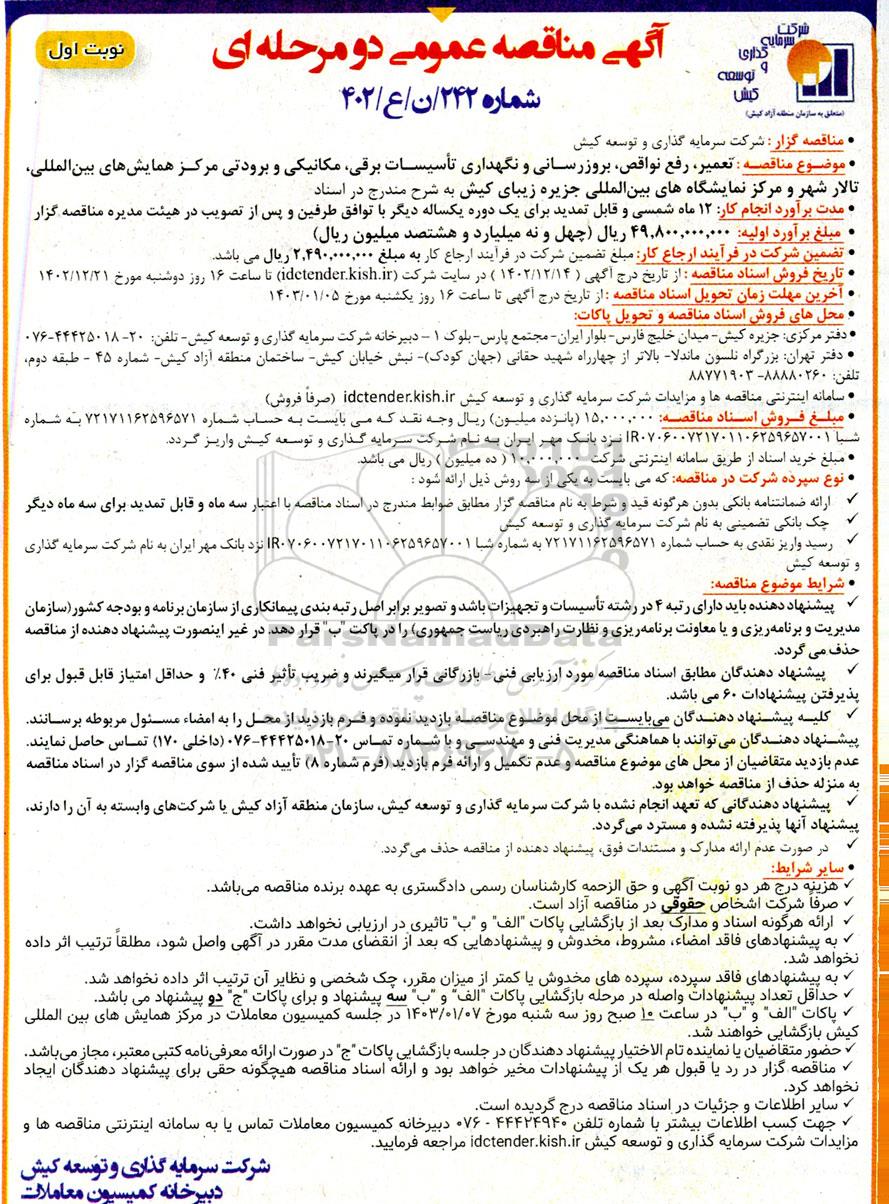 آگهی مناقصه عمومی دو مرحله ای
نوبت اول
شماره ۲۴۲/ن/ع/۴۰۲
شرکت
سرمایه
گذاری
و
توسعه
کیش
(متعلق به سازمان منطقه آزاد کیش)
• مناقصه گزار : شرکت سرمایه گذاری و توسعه کیش
• موضوع مناقصه : تعمیر، رفع نواقص، بروزرسانی و نگهداری تأسیسات برقی، مکانیکی و برودتی مرکز همایش‌های بین‌المللی،
تالار شهر و مرکز نمایشگاه های بین‌المللی جزیره زیبای کیش به شرح مندرج در اسناد
• مدت برآورد انجام کار: ۱۲ ماه شمسی و قابل تمدید برای یک دوره یکساله دیگر با توافق طرفین و پس از تصویب در هیئت مدیره مناقصه گزار
• مبلغ برآورد اولیه: ۴۹,۸۰۰,۰۰۰,۰۰۰ ریال (چهل و نه میلیارد و هشتصد میلیون ریال)
• تضمین شرکت در فرآیند ارجاع کار: مبلغ تضمین شرکت در فرآیند ارجاع کار به مبلغ ۲,۴۹۰,۰۰۰,۰۰۰ ریال می باشد.
• تاریخ فروش اسناد مناقصه : از تاریخ درج آگهی ( ۱۴۰۲/۱۲/۱۴ ) در سایت شرکت (idctender.kish.ir) تا ساعت ۱۶ روز دوشنبه مورخ ۱۴۰۲/۱۲/۲۱
• آخرین مهلت زمان تحویل اسناد مناقصه : از تاریخ درج آگهی تا ساعت ۱۶ روز یکشنبه مورخ ۱۴۰۳/۰۱/۰۵
• محل های فروش اسناد مناقصه و تحویل پاکات:
• دفتر مرکزی: جزیره کیش- میدان خلیج فارس- بلوار ایران- مجتمع پارس- بلوک ۱ – دبیرخانه شرکت سرمایه گذاری و توسعه کیش- تلفن: ۲۰-۴۴۴۲۵۰۱۸-۰۷۶
• دفتر تهران: بزرگراه نلسون ماندلا- بالاتر از چهارراه شهید حقانی (جهان کودک)- نبش خیابان کیش- ساختمان منطقه آزاد کیش- شماره ۴۵ - طبقه دوم،
تلفن: ۸۸۸۸۰۲۶۰- ۸۸۷۷۱۹۰۳
• سامانه اینترنتی مناقصه ها و مزایدات شرکت سرمایه گذاری و توسعه کیش idctender.kish.ir (صرفاً فروش)
• مبلغ فروش اسناد مناقصه: ۱۵,۰۰۰,۰۰۰ (پانزده میلیون) ریال وجه نقد که می بایست به حساب شماره ۷۲۱۷۱۱۶۲۵۹۶۵۷۱ به شماره
شبا IR۰۷۰۶۰۰۷۲۱۷۰۱۱۰۶۲۵۹۶۵۷۰۰۱ نزد بانک مهر ایران به نام شرکت سرمایه گذاری و توسعه کیش واریز گردد.
• مبلغ خرید اسناد از طریق سامانه اینترنتی شرکت ۱۰,۰۰۰,۰۰۰ ( ده میلیون ) ریال می باشد.
• نوع سپرده شرکت در مناقصه: که می بایست به یکی از سه روش ذیل ارائه شود :
✓ ارائه ضمانتنامه بانکی بدون هرگونه قید و شرط به نام مناقصه گزار مطابق ضوابط مندرج در اسناد مناقصه با اعتبار سه ماه و قابل تمدید برای سه ماه دیگر
✓ چک بانکی تضمینی به نام شرکت سرمایه گذاری و توسعه کیش
✓ رسید واریز نقدی به حساب شماره ۷۲۱۷۱۱۶۲۵۹۶۵۷۱ به شماره شبا IR۰۷۰۶۰۰۷۲۱۷۰۱۱۰۶۲۵۹۶۵۷۰۰۱ نزد بانک مهر ایران به نام شرکت سرمایه گذاری
و توسعه کیش
• شرایط موضوع مناقصه:
✓ پیشنهاد دهنده باید دارای رتبه ۴ در رشته تأسیسات و تجهیزات باشد و تصویر برابر اصل رتبه بندی پیمانکاری از سازمان برنامه و بودجه کشور(سازمان
مدیریت و برنامه‌ریزی و یا معاونت برنامه‌ریزی و نظارت راهبردی ریاست جمهوری) را در پاکت "ب" قرار دهد. در غیر اینصورت پیشنهاد دهنده از مناقصه
حذف می گردد.
✓ پیشنهاد دهندگان مطابق اسناد مناقصه مورد ارزیابی فنی- بازرگانی قرار میگیرند و ضریب تأثیر فنی ۴۰٪ و حداقل امتیاز قابل قبول برای
پذیرفتن پیشنهادات ۶۰ می باشد.
✓ کلیه پیشنهاد دهندگان می‌بایست از محل موضوع مناقصه بازدید نموده و فرم بازدید از محل را به امضاء مسئول مربوطه برسانند.
پیشنهاد دهندگان می‌توانند با هماهنگی مدیریت فنی و مهندسی و با شماره تماس ۲۰-۴۴۴۲۵۰۱۸-۰۷۶ (داخلی ۱۷۰) تماس حاصل نمایند.
عدم بازدید متقاضیان از محل های موضوع مناقصه و عدم تکمیل و ارائه فرم بازدید (فرم شماره ۸) تأیید شده از سوی مناقصه گزار در اسناد مناقصه
به منزله حذف از مناقصه خواهد بود.
✓ پیشنهاد دهندگانی که تعهد انجام نشده با شرکت سرمایه گذاری و توسعه کیش، سازمان منطقه آزاد کیش یا شرکت‌های وابسته به آن را دارند،
پیشنهاد آنها پذیرفته نشده و مسترد می‌گردد.
✓ در صورت عدم ارائه مدارک و مستندات فوق، پیشنهاد دهنده از مناقصه حذف می‌گردد.
• سایر شرایط:
✓ هزینه درج هر دو نوبت آگهی و حق الزحمه کارشناسان رسمی دادگستری به عهده برنده مناقصه می‌باشد.
✓ صرفاً شرکت اشخاص حقوقی در مناقصه آزاد است.
✓ ارائه هرگونه اسناد و مدارک بعد از بازگشایی پاکات "الف" و "ب" تاثیری در ارزیابی نخواهد داشت.
✓ به پیشنهادهای فاقد امضاء، مشروط، مخدوش و پیشنهادهایی که بعد از انقضای مدت مقرر در آگهی واصل شود، مطلقاً ترتیب اثر داده
نخواهد شد.
✓ به پیشنهادهای فاقد سپرده، سپرده های مخدوش یا کمتر از میزان مقرر، چک شخصی و نظایر آن ترتیب اثر داده نخواهد شد.
✓ حداقل تعداد پیشنهادات واصله در مرحله بازگشایی پاکات "الف" و "ب" سه پیشنهاد و برای پاکات "ج" دو پیشنهاد می باشد.
✓ پاکات "الف" و "ب" در ساعت ۱۰ صبح روز سه شنبه مورخ ۱۴۰۳/۰۱/۰۷ در جلسه کمیسیون معاملات در مرکز همایش های بین المللی
کیش بازگشایی خواهند شد.
✓ حضور متقاضیان یا نماینده تام الاختیار پیشنهاد دهندگان در جلسه بازگشایی پاکات "ج" در صورت ارائه معرفی‌نامه کتبی معتبر، مجاز می‌باشد.
✓ مناقصه گزار در رد یا قبول هر یک از پیشنهادات مخیر خواهد بود و ارائه اسناد مناقصه هیچگونه حقی برای پیشنهاد دهندگان ایجاد
نخواهد کرد.
✓ سایر اطلاعات و جزئیات در اسناد مناقصه درج گردیده است.
✓ جهت کسب اطلاعات بیشتر با شماره تلفن ۴۴۴۲۴۹۴۰ - ۰۷۶ دبیرخانه کمیسیون معاملات تماس یا به سامانه اینترنتی مناقصه ها و
مزایدات شرکت سرمایه گذاری و توسعه کیش idctender.kish.ir مراجعه فرمایید.
شرکت سرمایه گذاری و توسعه کیش
دبیرخانه کمیسیون معاملات
ParsNamadData